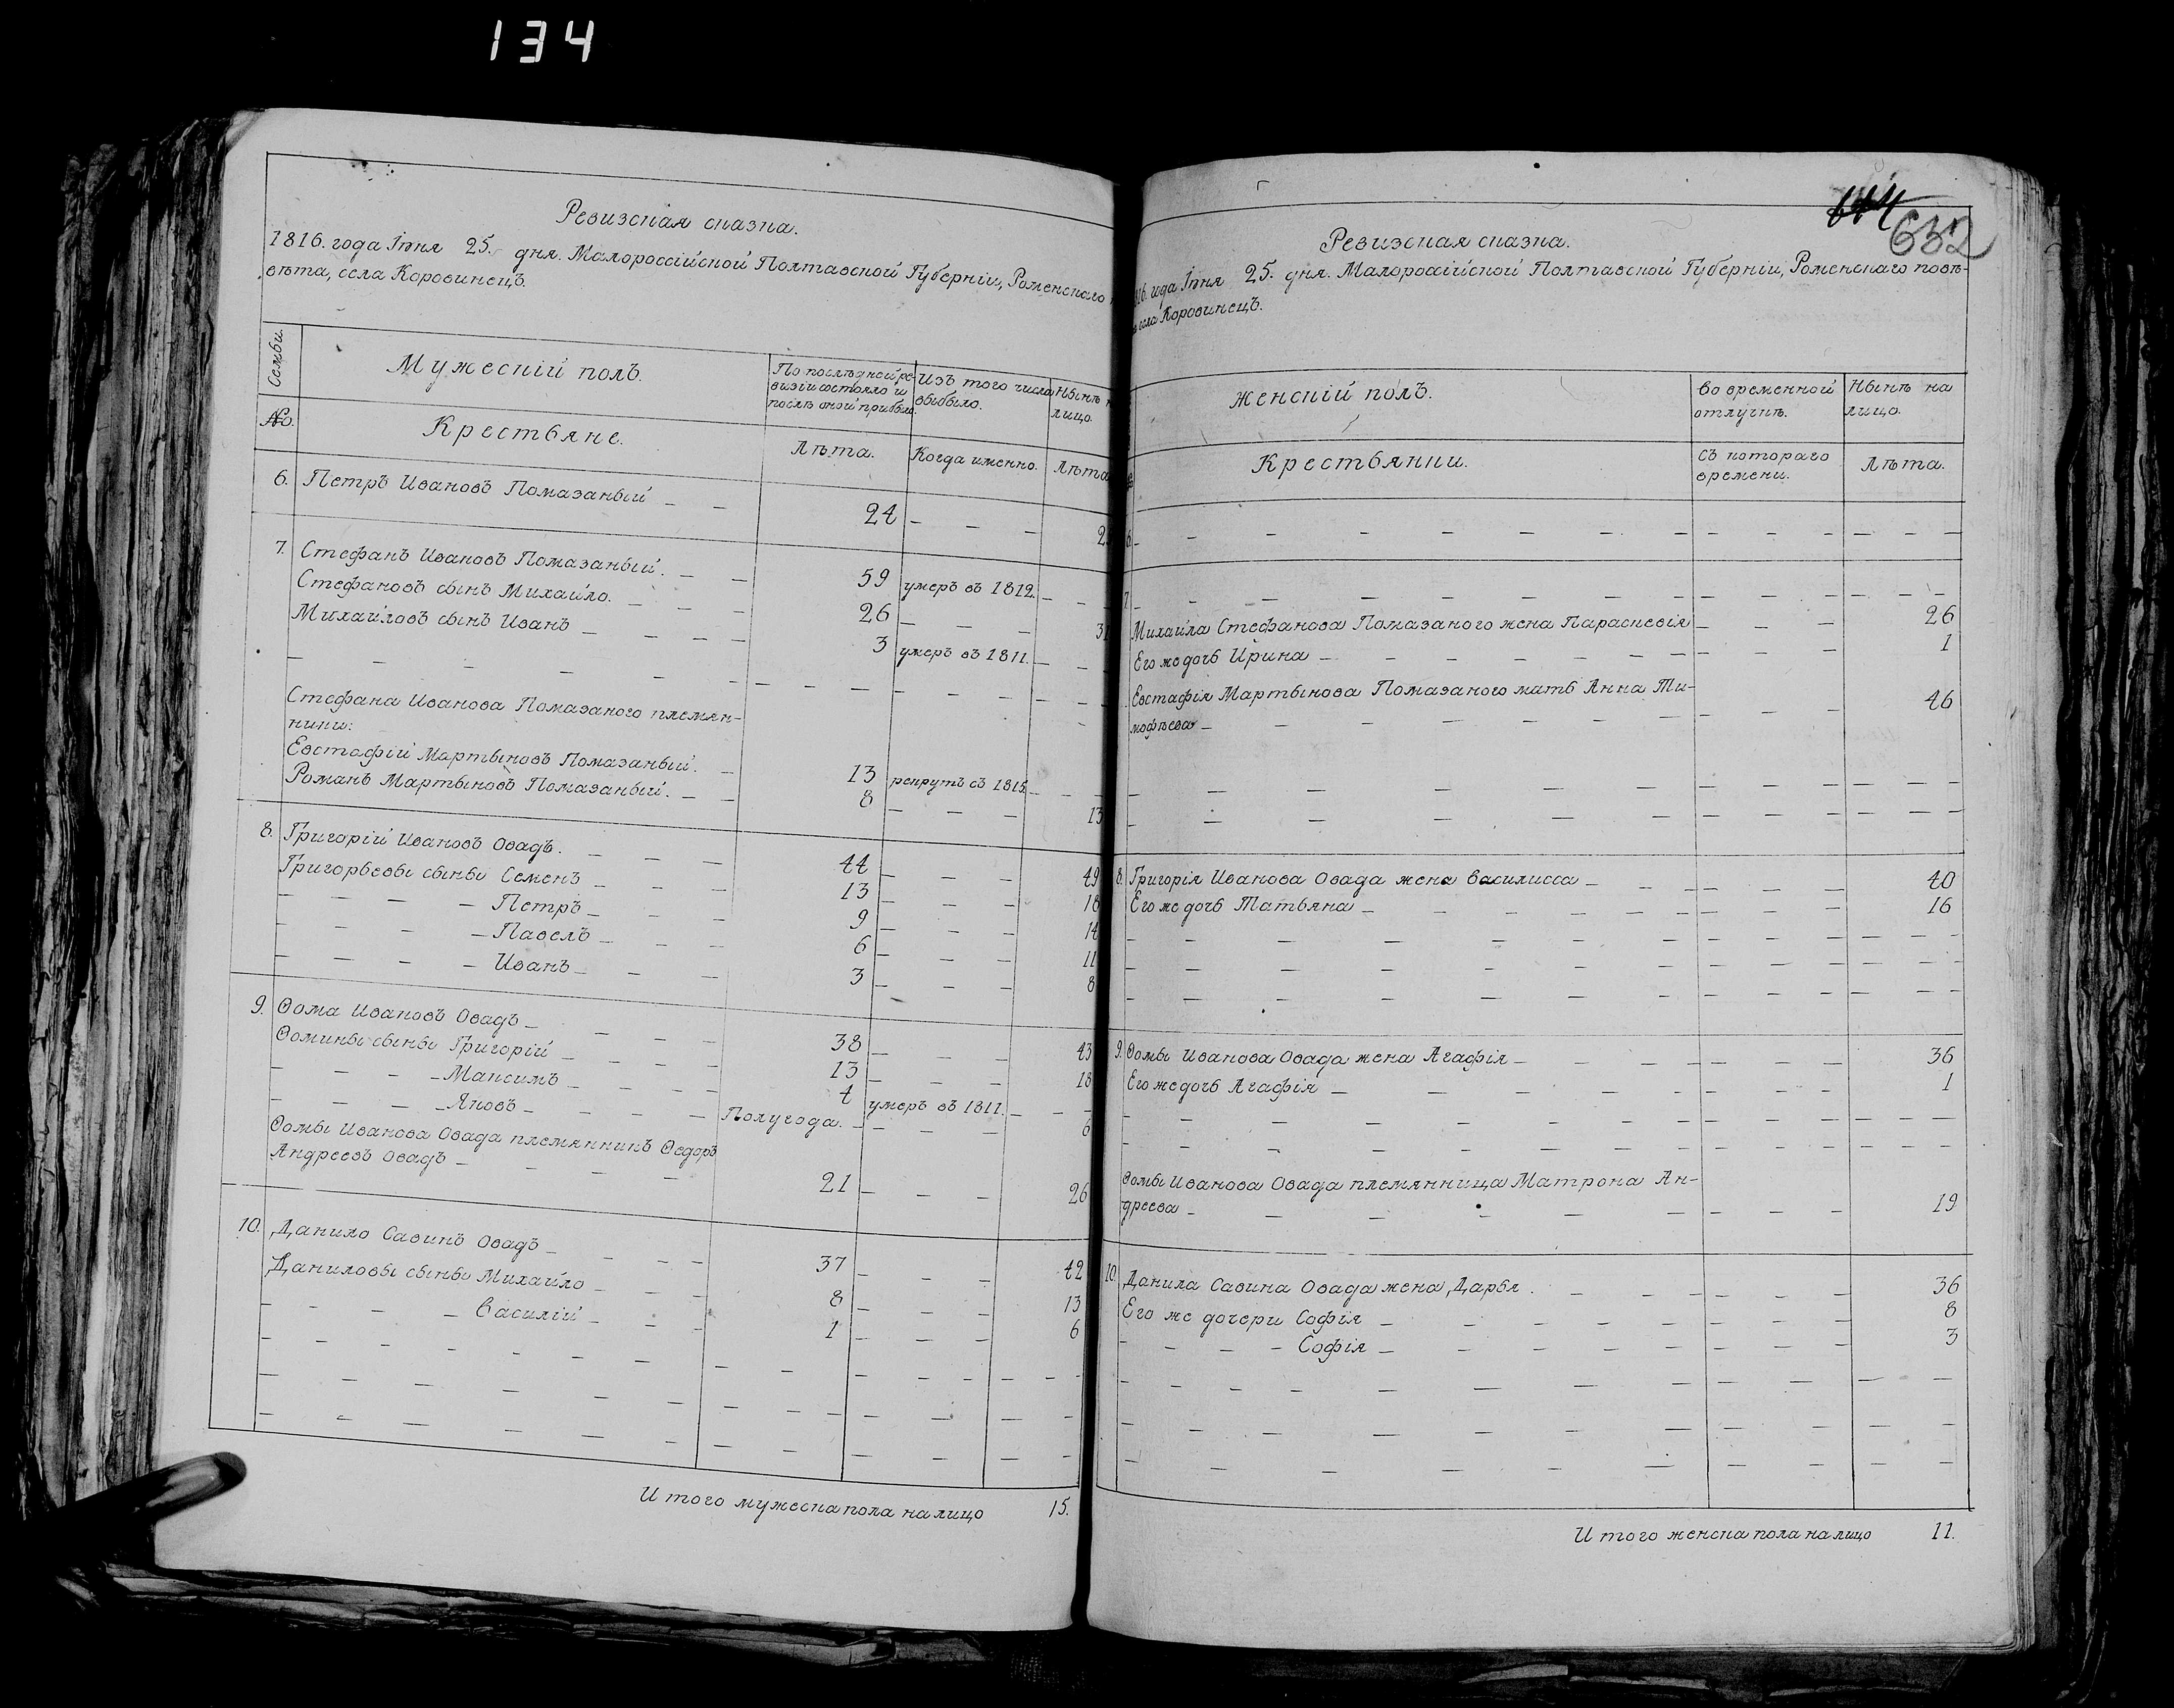 134
Ревизская сказка.
1816. года Іюня 25. дня. Малороссійской Полтавской Губерніи, Роменскаго
вѣта, села Коровинецъ.
Семьи.
Мужескій полъ.
По послѣдней ре-
визіи состояло и
послѣ оной прибыло.
Изъ того числа
выбыло.
Нынѣ на
лицо.
№.
Крестьяне.
Лѣта.
Когда именно.
Лѣта
6. Петръ Ивановъ Помазаный — — 24 — — —
7. Стефанъ Ивановъ Помазаный. — — 59 умеръ въ 1812. — —
Стефановъ сынъ Михайло. — — — 26 — — — 31
Михайловъ сынъ Иванъ — — — — 3 умеръ въ 1811. — —
Стефана Иванова Помазаного племян-
ники:
Евстафій Мартыновъ Помазаный. — 13 рекрутъ съ 1815. — —
Романъ Мартыновъ Помазаный. — — 8 — — — 13
8. Григорій Ивановъ Овадъ. — — — 44 — — — 49
Григорьевы сыны Семенъ — — — 13 — — — 18
— — — — Петръ — — — 9 — — — 14
— — — — Павелъ — — — 6 — — — 11
— — — — Иванъ — — — 3 — — — 8
9. Ѳома Ивановъ Овадъ — — — — 38 — — — 43
Ѳомины сыны Григорій — — — — 13 — — — 18
— — — — Максимъ — — — — 4 умеръ въ 1811. — —
— — — — Яковъ — — — — Полугода. — — — 6
Ѳомы Иванова Овада племянникъ Ѳедоръ
Андреевъ Овадъ — — — — 21 — — — 26
10. Данило Савинъ Овадъ — — — — 37 — — — 42
Даниловы сыны Михайло — — — 8 — — — 13
— — — — Василій — — — 1 — — — 6
Итого мужеска пола на лицо 15.
632
Ревизская сказка.
года Іюня 25. дня. Малороссійской Полтавской Губерніи, Роменскаго повѣ-
села Коровинецъ.
Женскій полъ.
Во временной
отлучкѣ.
Нынѣ на
лицо.
Крестьянки.
Съ котораго
времени.
Лѣта.
6 — — — — — — — —
7 — — — — — — — —
Михайла Стефанова Помазаного жена Параскевія — — — 26
Его же дочь Ирина — — — — — — 1
Евстафія Мартынова Помазаного мать Анна Ти-
мофѣева — — — — — — 46
8. Григорія Иванова Овада жена Василисса — — — — 40
Его же дочь Татьяна — — — — — — 16
9. Ѳомы Иванова Овада жена Агафія — — — — 36
Его же дочь Агафія — — — — — — 1
Ѳомы Иванова Овада племянница Матрона Ан-
дреева — — — — — — 19
10. Данила Савина Овада жена Дарья. — — — — 36
Его же дочери Софія — — — — — 8
— — — — Софія — — — — — 3
Итого женска пола на лицо 11.